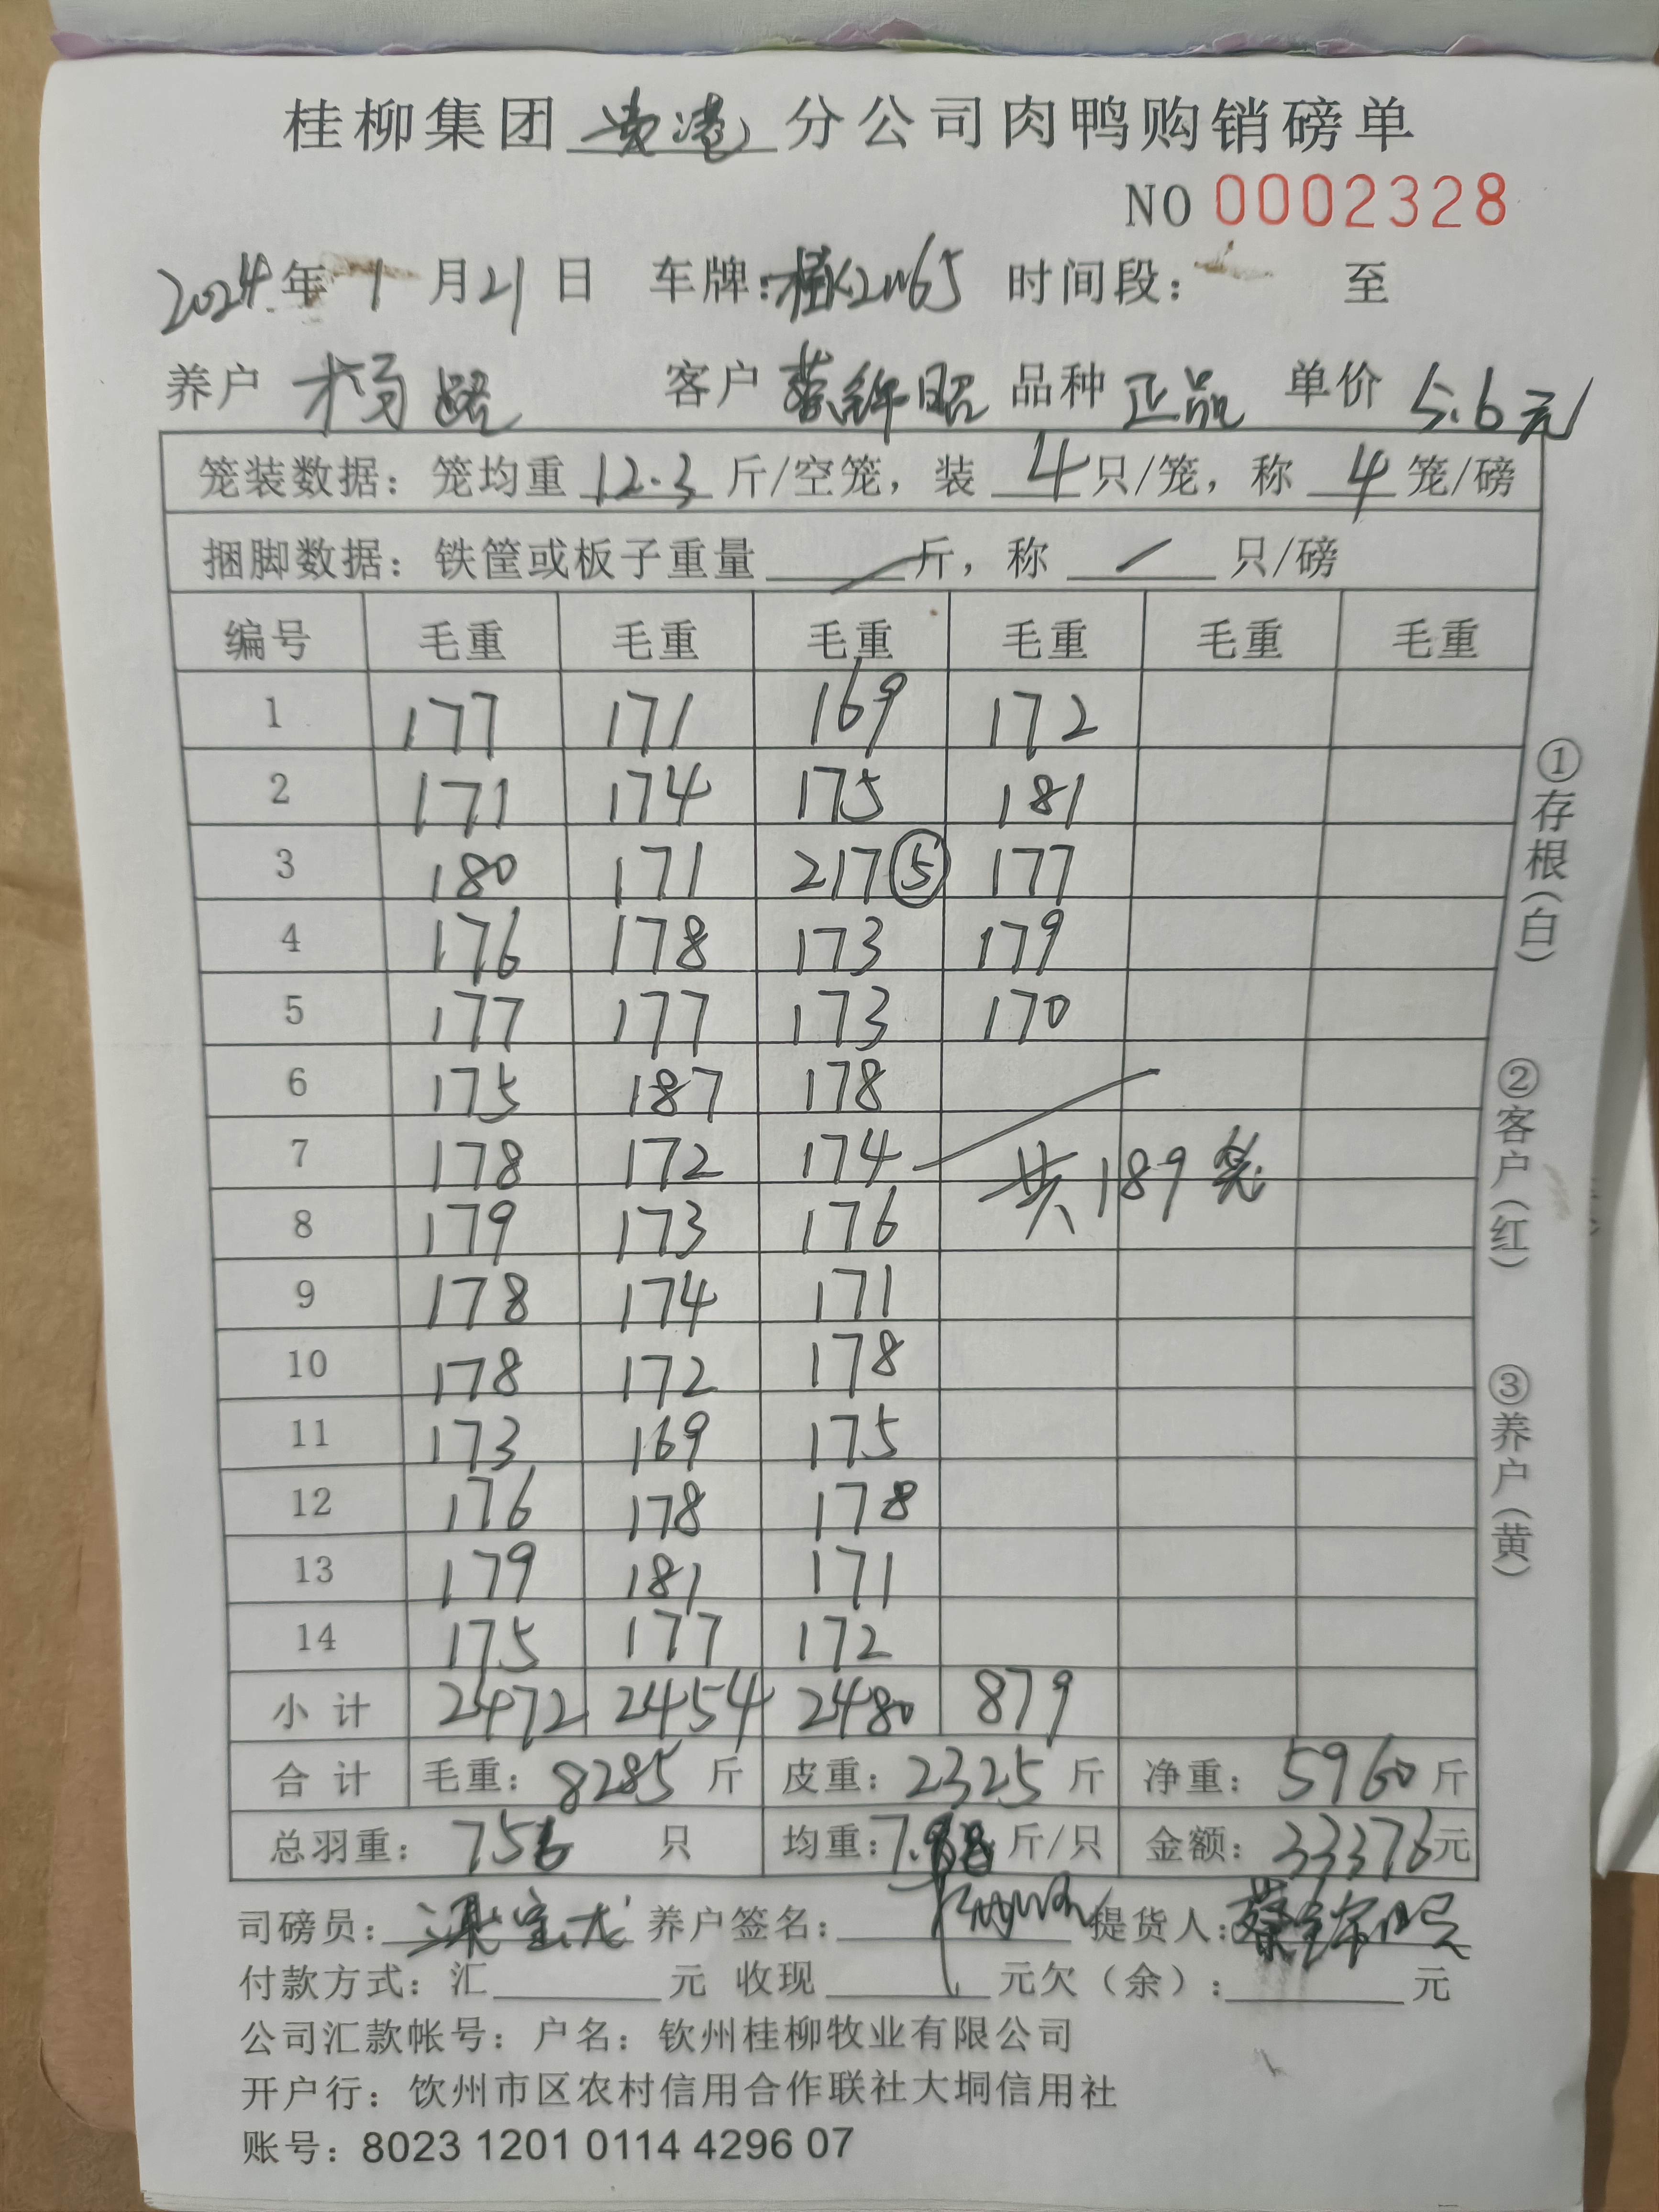 桂柳集团 贵港 分公司肉鸭购销磅单
NO 0002328
2024年 1 月 21 日 车牌: 桂K2N65 时间段: 至
养户 杨 客户 蔡锦昭 品种 正品 单价 5.6元
笼装数据: 笼均重 12.3 斤/空笼, 装 4 只/笼, 称 4 笼/磅
捆脚数据: 铁筐或板子重量 / 斤, 称 / 只/磅
编号 毛重 毛重 毛重 毛重 毛重 毛重
1 177 171 169 172
2 171 174 175 181
3 180 171 217⑤ 177
4 176 178 173 179
5 177 177 173 170
6 175 187 178
7 178 172 174 共189笼
8 179 173 176
9 178 174 171
10 178 172 178
11 173 169 175
12 176 178 178
13 179 181 171
14 175 177 172
小计 2472 2454 2480 879
合计 毛重: 8285 斤 皮重: 2325 斤 净重: 5960 斤
总羽重: 756 只 均重: 7.88 斤/只 金额: 33376元
司磅员: 梁宝龙 养户签名: 提货人: 蔡锦昭
付款方式: 汇 元 收现 元欠(余): 元
公司汇款帐号: 户名: 钦州桂柳牧业有限公司
开户行: 饮州市区农村信用合作联社大垌信用社
账号: 8023 1201 0114 4296 07
①存根(白)
②客户(红)
③养户(黄)